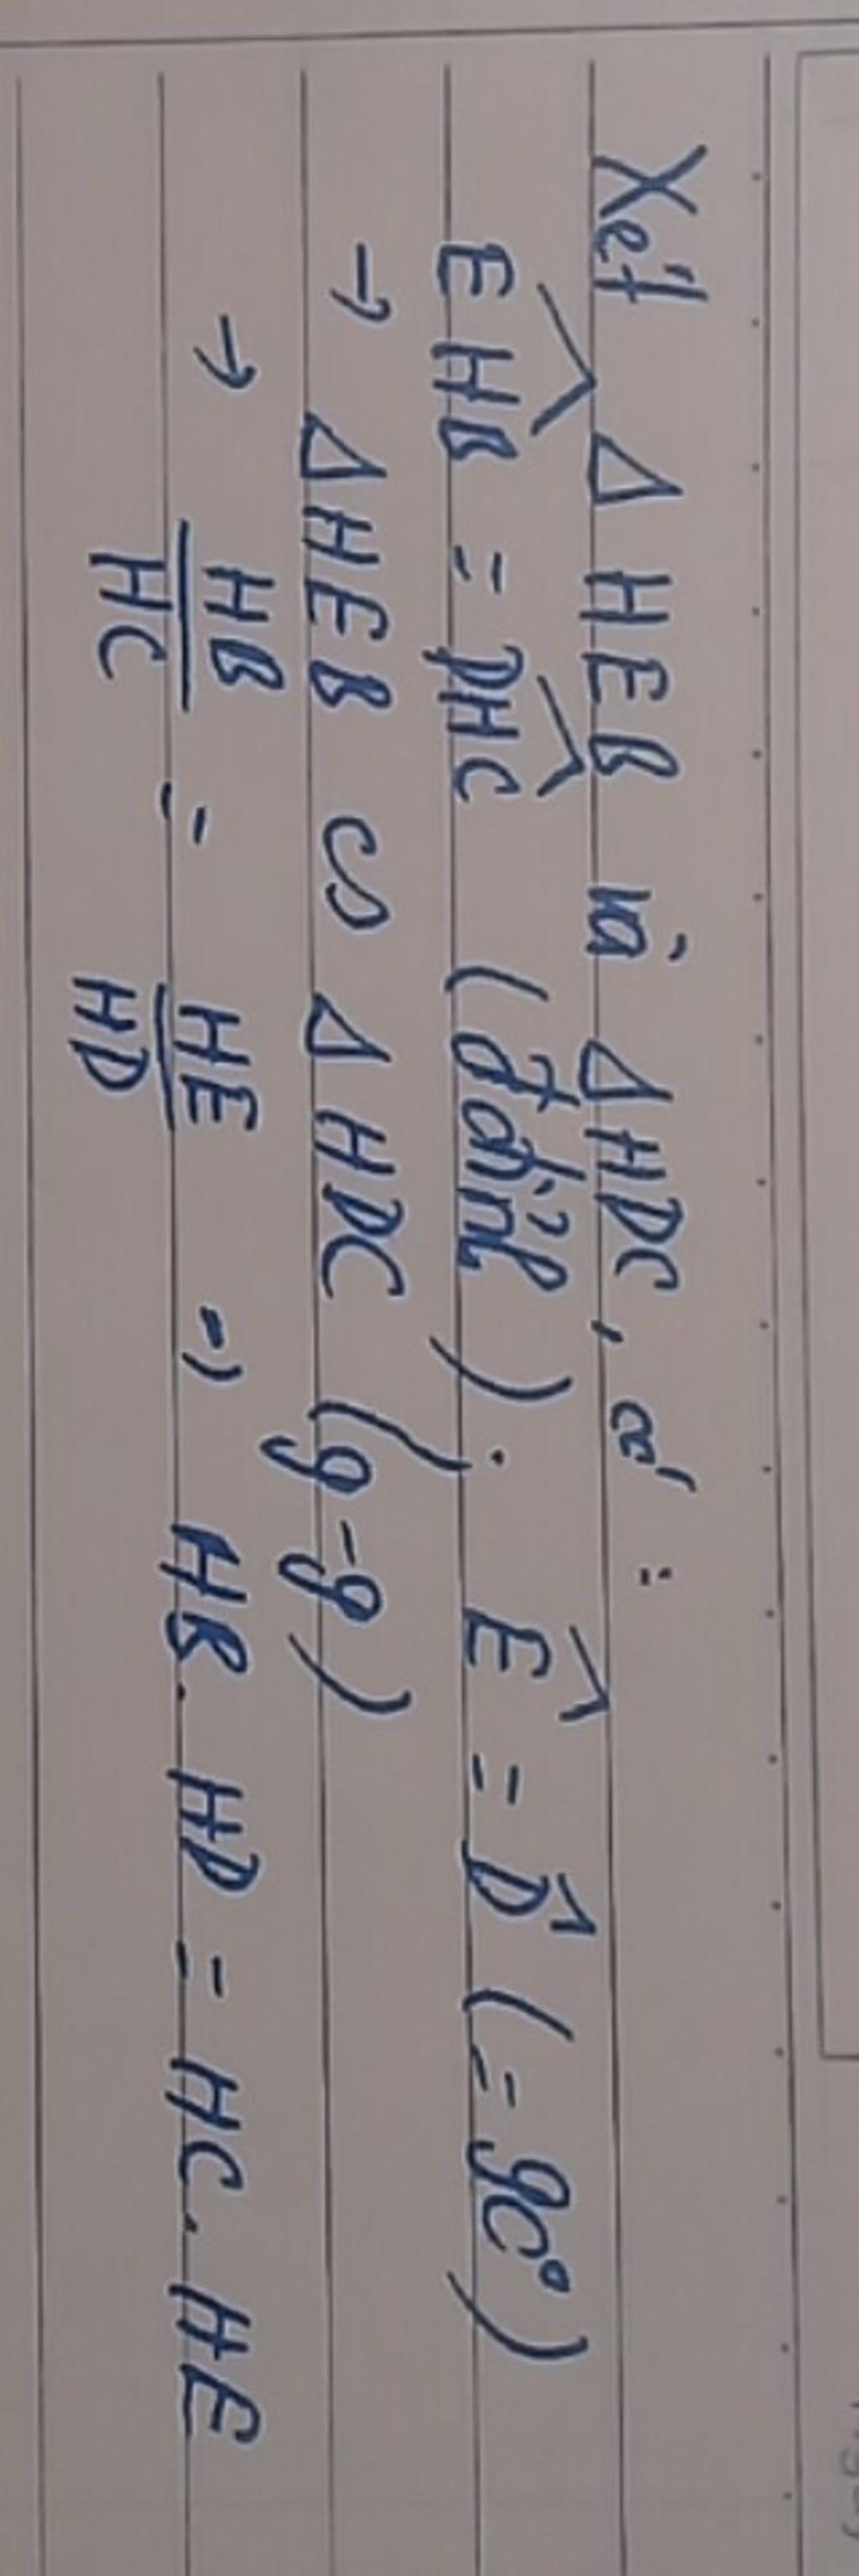 Xét Δ HEB và Δ HDC, có :
\widehat{EHB} = \widehat{DHC} (đđỉnh) ; \widehat{E} = \widehat{D} (= 90°)
→ Δ HEB ∽ Δ HDC (g-g)
→ \frac{HB}{HC} = \frac{HE}{HD} → HB. HD = HC. HE